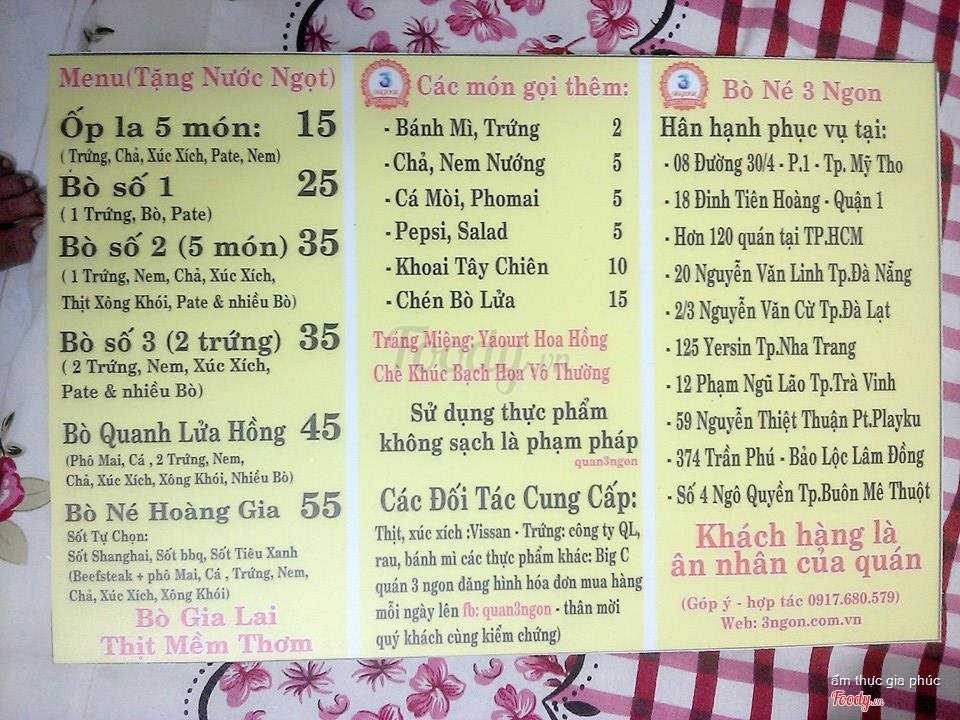 Menu(Tặng Nước Ngọt)
Ốp la 5 món: 15
( Trứng, Chả, Xúc Xích, Pate, Nem)
Bò số 1 25
( 1 Trứng, Bò, Pate)
Bò số 2 (5 món) 35
( 1 Trứng, Nem, Chả, Xúc Xích,
Thịt Xông Khói, Pate & nhiều Bò)
Bò số 3 (2 trứng) 35
( 2 Trứng, Nem, Xúc Xích,
Pate & nhiều Bò)
Bò Quanh Lửa Hồng 45
(Phô Mai, Cá , 2 Trứng, Nem,
Chả, Xúc Xích, Xông Khói, Nhiều Bò)
Bò Né Hoàng Gia 55
Sốt Tự Chọn:
Sốt Shanghai, Sốt bbq, Sốt Tiêu Xanh
(Beefsteak + phô Mai, Cá , Trứng, Nem,
Chả, Xúc Xích, Xông Khói)
Bò Gia Lai
Thịt Mềm Thơm
3
Các món gọi thêm:
- Bánh Mì, Trứng 2
- Chả, Nem Nướng 5
- Cá Mòi, Phomai 5
- Pepsi, Salad 5
- Khoai Tây Chiên 10
- Chén Bò Lửa 15
Tráng Miệng: Yaourt Hoa Hồng
Chè Khúc Bạch Hoa Vô Thường
Foody.vn
Sử dụng thực phẩm
không sạch là phạm pháp
quan3ngon
Các Đối Tác Cung Cấp:
Thịt, xúc xích :Vissan - Trứng: công ty QL,
rau, bánh mì các thực phẩm khác: Big C
quán 3 ngon đăng hình hóa đơn mua hàng
mỗi ngày lên fb: quan3ngon - thân mời
quý khách cùng kiểm chứng)
3
Bò Né 3 Ngon
Hân hạnh phục vụ tại:
- 08 Đường 30/4 - P.1 - Tp. Mỹ Tho
- 18 Đinh Tiên Hoàng - Quận 1
- Hơn 120 quán tại TP.HCM
- 20 Nguyễn Văn Linh Tp.Đà Nẵng
- 2/3 Nguyễn Văn Cừ Tp.Đà Lạt
- 125 Yersin Tp.Nha Trang
- 12 Phạm Ngũ Lão Tp.Trà Vinh
- 59 Nguyễn Thiệt Thuận Pt.Playku
- 374 Trần Phú - Bảo Lộc Lâm Đồng
- Số 4 Ngô Quyền Tp.Buôn Mê Thuột
Khách hàng là
ân nhân của quán
(Góp ý - hợp tác 0917.680.579)
Web: 3ngon.com.vn
ẩm thực gia phúc
Foody.vn